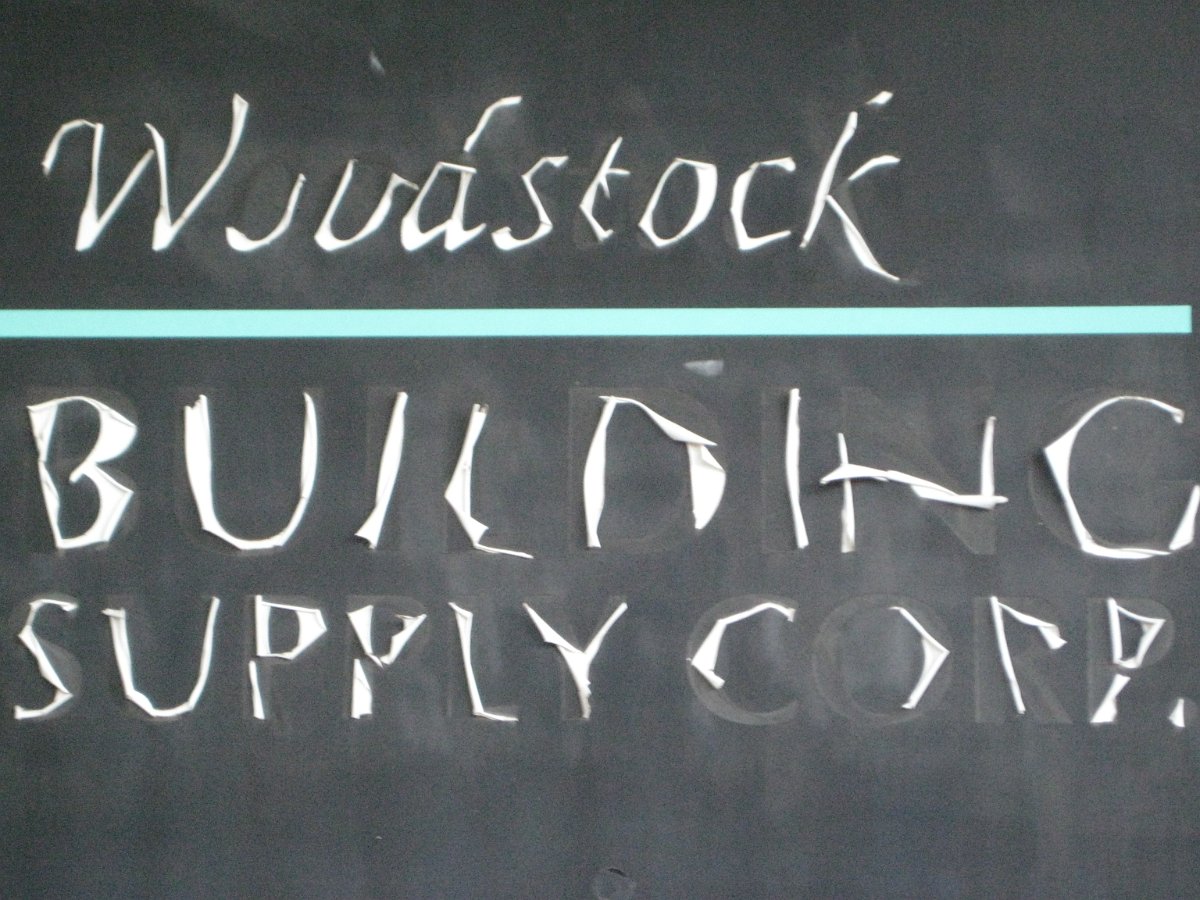 Woodstock
BUILDING
SUPPLY CORP.